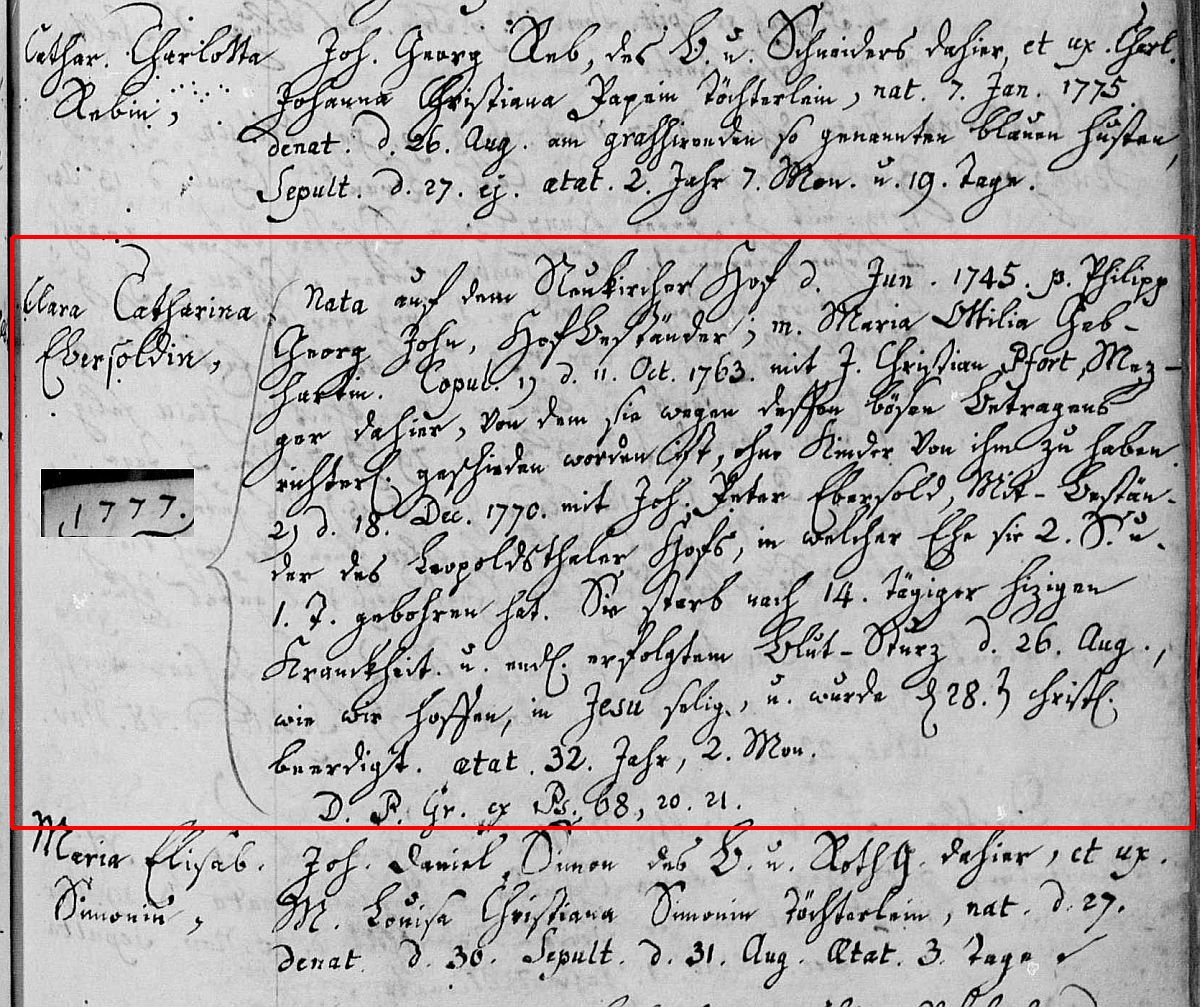 Cathar. Charlotta Joh. Georg Reb, des B. u. Schneiders dahier, et ux. Charl.
Rebin, Johanna Christiana Papein Töchterlein, nat. 7. Jan. 1775
denat. d. 26. Aug. am grassirenden so genannten blauen Husten,
Sepult. d. 27. ej. ætat. 2. Jahr 7. Mon. u. 19. Tage.
Clara Catharina Nata auf dem Neukircher Hof d. Jun. 1745. p. Philipp
Ebersoldin, Georg John, Hofbeständer; m. Maria Ottilia Geb-
hartin. Copul. 1) d. 11. Oct. 1763. mit J. Christian Pfort, Mez-
ger dahier, von dem sie wegen dessen bösen Betragens
richterl. geschieden worden ist, ohne Kinder von ihm zu haben.
1777. 2) d. 18. Dec. 1770. mit Joh. Peter Ebersold, Mit-Bestän-
der des Leopoldsthaler Hofs, in welcher Ehe sie 2. S. u.
1. T. gebohren hat. Sie starb nach 14. tägiger hizigen
Kranckheit u. endl. erfolgtem Blut-Sturz d. 26. Aug.,
wie wir hoffen, in Jesu selig, u. wurde d. 28. christl.
beerdigt. ætat. 32. Jahr, 2. Mon.
D. P. Gr. ex Ps. 68, 20. 21.
Maria Elisab. Joh. Daniel Simon des B. u. RothG. dahier, et ux.
Simonin, M. Louisa Christiana Simonin Töchterlein, nat. d. 27.
denat. d. 30. Sepult. d. 31. Aug. Ætat. 3. Tage